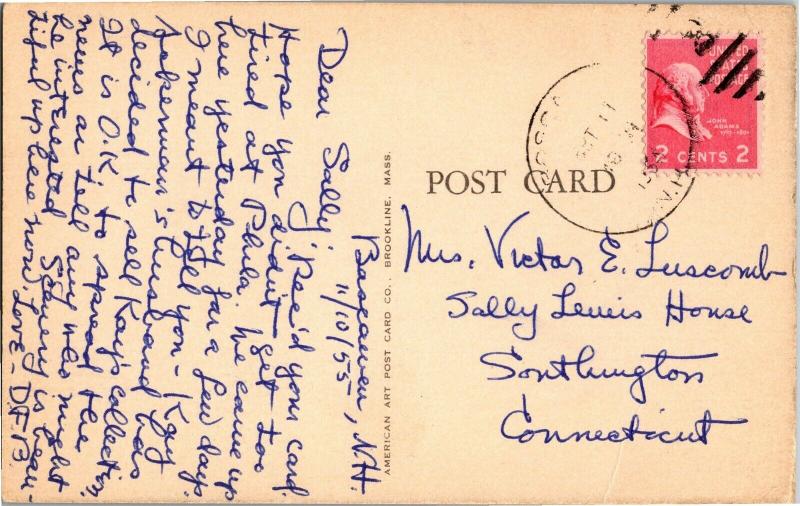 Boscawen, N.H.
11/10/55
Dear Sally, Rec'd your card.
Hope you didn't get too
tired at Phila. We came up
here yesterday for a few days.
I meant to tell you - Kay
husband has
decided to sell Kay's collection
It is O.K. to spread the
news or tell any who might
be interested Scenery is beau-
tiful up here now. Love - D.F.B.
AMERICAN ART POST CARD CO., BROOKLINE, MASS.
POST CARD
UNITED
STATES
POSTAGE
JOHN
ADAMS
2 CENTS 2
11
N.H.
Mrs. Victor E. Luscomb
Sally Lewis House
Southington
Connecticut